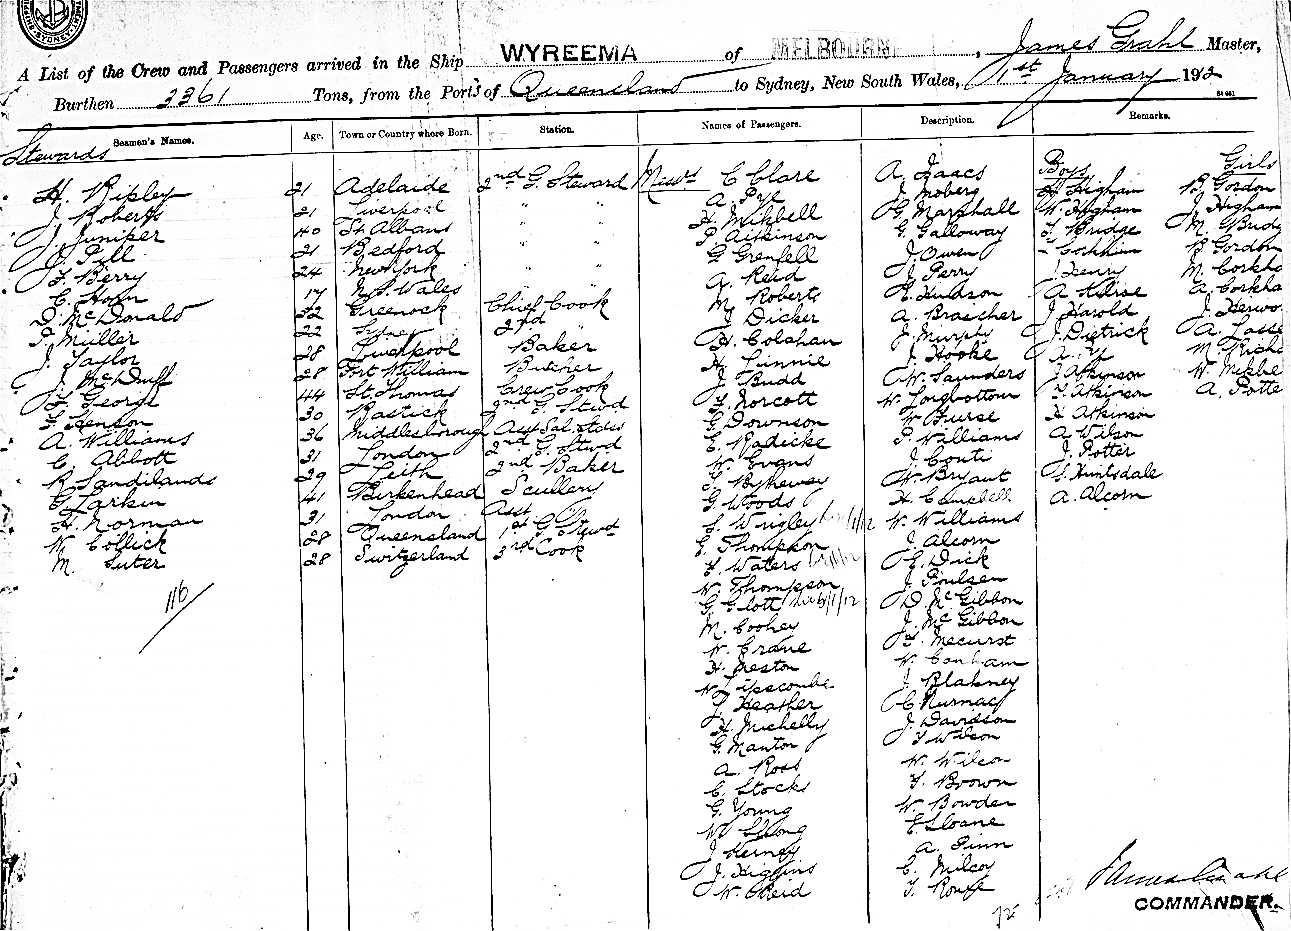 SYDNEY
A List of the Crew and Passengers arrived in the Ship WYREEMA of MELBOURNE, James Grahl Master,
Burthen 3361 Tons, from the Port's of Queensland to Sydney, New South Wales, 1st January 1912
Seamen's Names. Age. Town or Country where Born. Station. Names of Passengers. Description. Remarks.
Stewards
H. Ripley 21 Adelaide 2nd G. Steward
J. Roberts 21 Liverpool " "
J. Juniper 40 St. Albans " "
J. Pill 21 Bedford " "
F. Berry 24 New York " "
C. Horn 17 N.S. Wales " "
D. McDonald 32 Greenock Chief Cook
P. Muller 22 Sydney 2nd "
J. Taylor 28 Liverpool Baker
J. McDuff 28 Fort William Butcher
F. George 44 St. Thomas Crew Cook
G. Henson 30 Rastick 2nd G. Stwd
A. Williams 36 Middlesborough Asst Sal. Stwds
C. Abbott 31 London 2nd G. Stwd
R. Sandilands 29 Leith 2nd Baker
G. Larkin 41 Birkenhead Scullery
H. Norman 31 London Asst "
W. Collick 28 Queensland 1st G. Stwd
M. Suter 28 Switzerland 3rd Cook
116
C Clare
A. Pye
H. Mitchell
P. Aitkinson
G. Grenfell
A. Reid
M. Roberts
J. Dicker
H. Colahan
H. Linnie
J. Budd
F. Norcott
G. Downson
E. Radicke
W. Evans
F. Bytheway
G. Woods
S. Wrigley
E. Thompson
F. Waters
W. Thompson
G. Glott
M. Coohey
W. Crane
H. Preston
W. Lipscombe
J. Heather
H. Michelly
G. Manton
A. Ross
C. Stocks
G. Young
W.
J. Kerney
J. Higgins
W. Reid
A. Isaacs
J. Moberg
G. Marshall
G. Galloway
J. Owen
J. Perry
E. Hudson
A. Brascher
J. Murphy
J. Hooke
W. Saunders
W. Longbottom
W. Furse
P. Williams
J. Conti
W. Bryant
H. Campbell
W. Williams
J. Alcorn
E. Dick
J. Poulsen
D. McGibbon
J. McGibbon
F. Mecurst
W. Conham
J. Blakney
C. Kurmac
J. Davidson
F. Wilson
W. Wilson
F. Brown
W. Bowden
E. Sloane
A. Finn
C. Milcoy
F. Rouse
72
Boys
H. Higham
W. Higham
F. Bridge
J. Henry
J. Harold
J. Dietrick
A. Pye
J. Atkinson
F. Atkinson
H. Atkinson
A. Wilson
J. Potter
S. Huntsdale
A. Alcorn
Girls
B. Gordon
J. Higham
M. Bridg
B. Gordon
M. Corkha
A. Corkha
J. Heiwo
A. Tasse
M. Richa
W. Mitchel
A. Potte
James Grahl
COMMANDER.